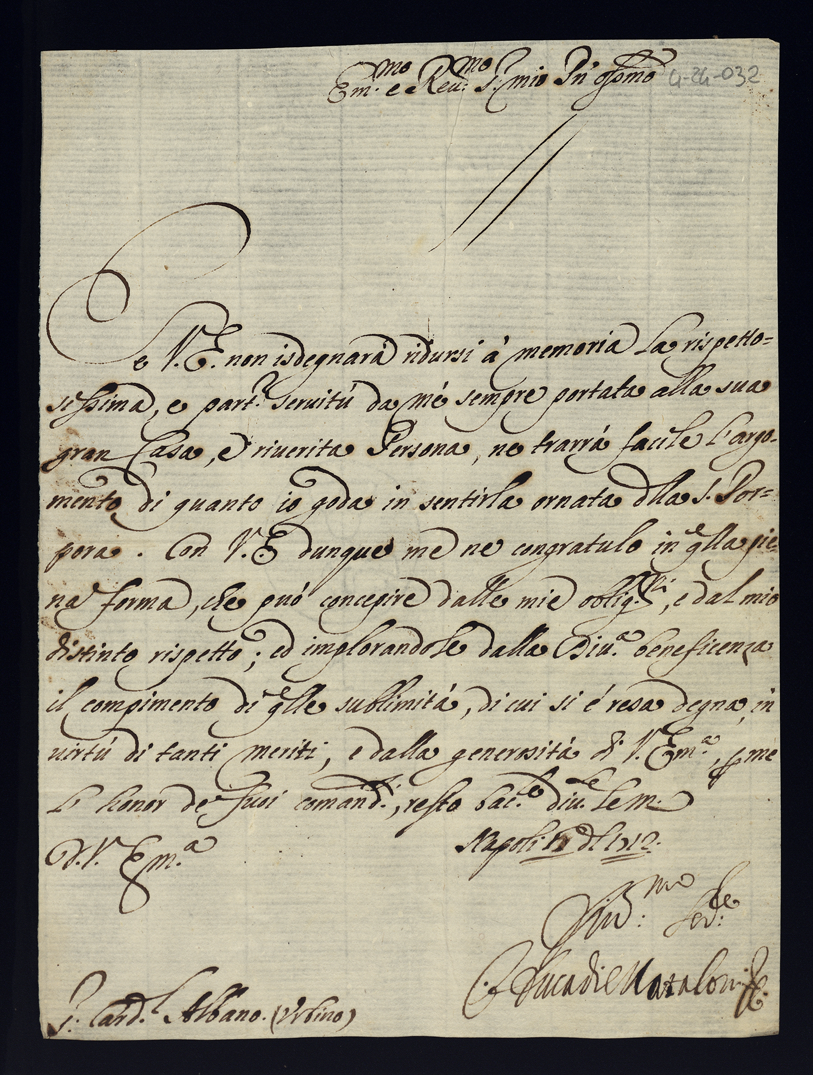 Em.mo e Reu.mo S.r mio Pn' Oss.mo
4-24-032
Se V.E. non isdegnarà ridursi à memoria la rispetto=
sissima, e part.r seruitù da mè sempre portata alla sua
gran Casa, e riuerita Persona, ne trarrà facile l'argo-
mento di quanto io goda in sentirla ornata dlla S. Por=
pora. Con V.E. dunque me ne congratulo in qlla pie
na forma, che può concepire dalle mie oblig.ni, e dal mio
distinto rispetto; ed implorandole dalla Diu.a beneficenza
il compimento di qlle sublimità, di cui si è resa degna, in
uirtù di tanti meriti, e dalla generosità di V. Em.a, p me
l'honor de' suoi comandi, resto bac.do diu.te le m.
D. V. Em.a
Napoli dl 1712.
Diu.mo Ser.re
Il Duca di Mataloni
S. Card.l Albano. (Vrbino)